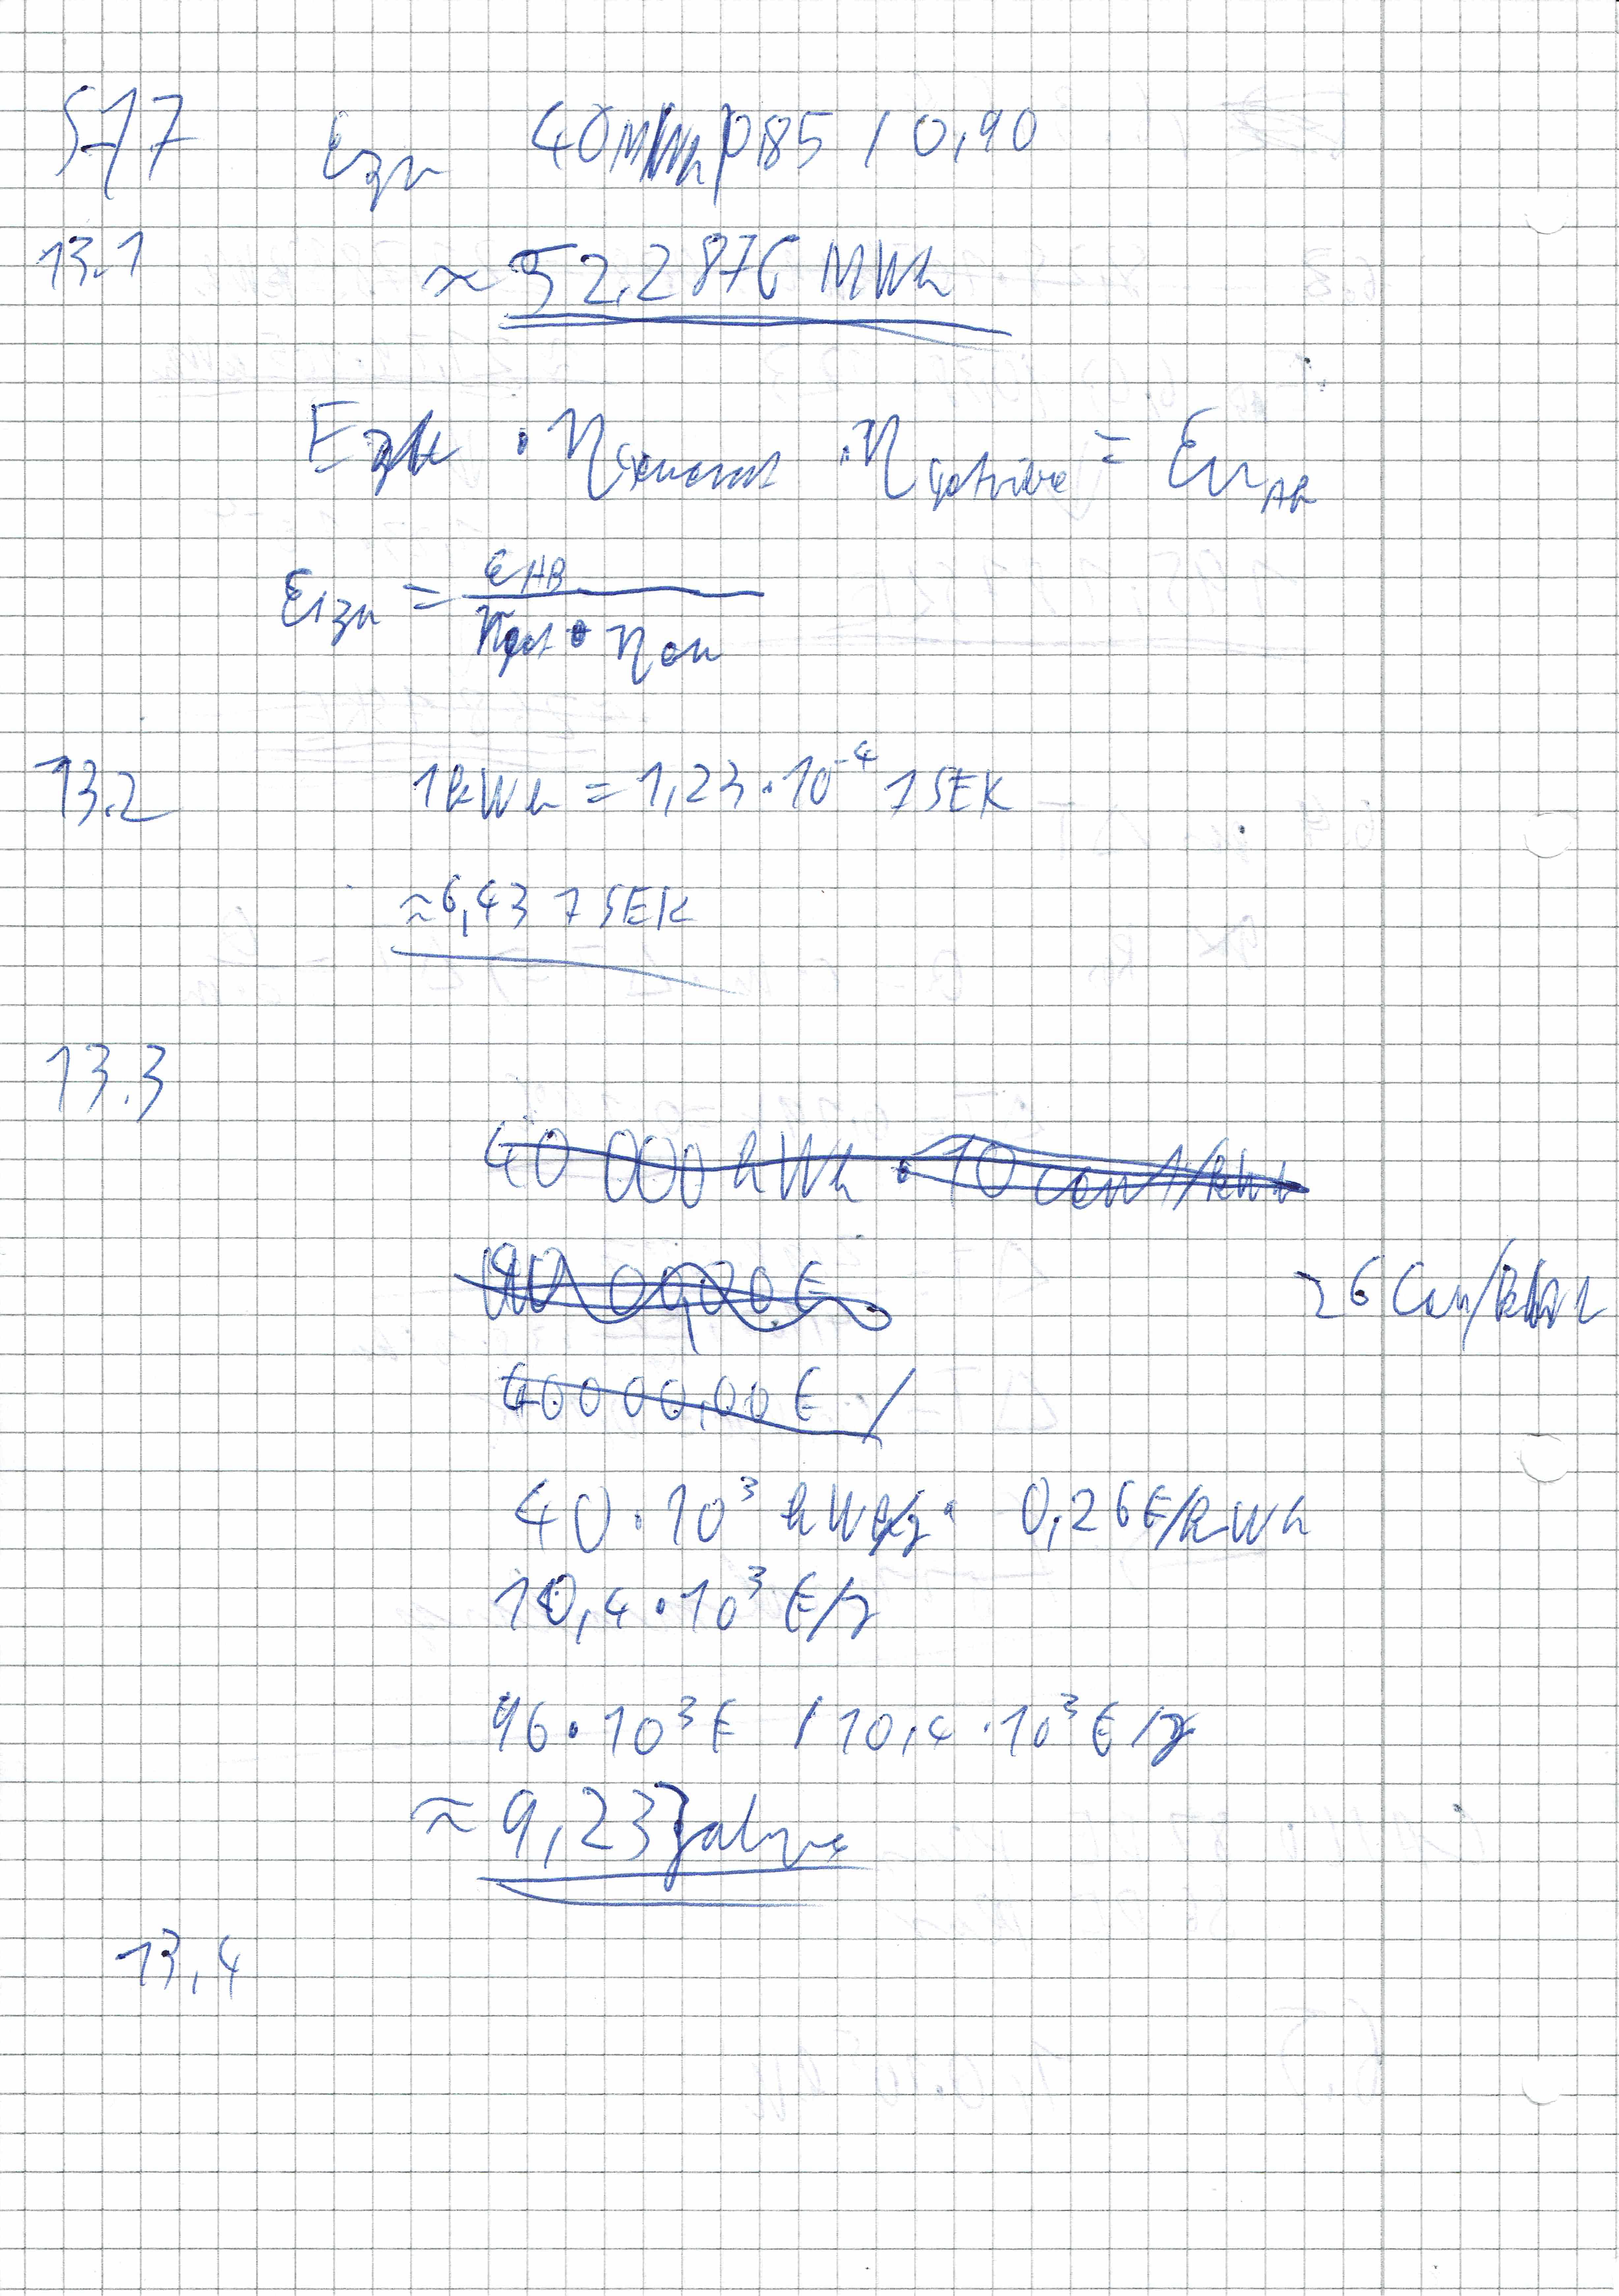 S-17 Ezu 40MWh/0,85 / 0,90
13.1 ≈ 52,2876 MWh
· η · η Getriebe = AB
Ezu = E AB / η get · η
13.2 1kWh = 1,23 · 10⁻⁴ 1 SEK
≈ 6,43 1 SEK
13.3
40 000 kWh · 10 cent/kWh
26 Cen/kWh
40000,00 € /
40 · 10³ kWh/J · 0,26 €/kWh
10,4 · 10³ €/J
96 · 10³ € / 10,4 · 10³ €/J
≈ 9,23 Jahre
13,4